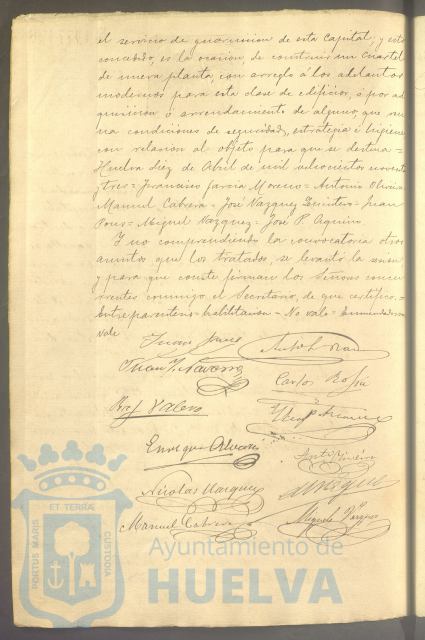 el servicio de guarnicion de esta Capital; y esto
concedido, es la ocasion, de construir un Cuartel
de nueva planta, con arreglo á los adelantos
modernos para esta clase de edificios, ó por ad
quisicion ó arrendamiento de alguno, que reu
na condiciones de seguridad, estrategia é higiene
con relacion al objeto para que se destina=
Huelva diez de Abril de mil ochocientos noventa
y tres= Francisco Garcia Moreno= Antonio Oliveira
Manuel Cabrera= José Vazquez Quintero= Juan
Pons= Miguel Vazquez= José P. Aquino
Y no comprendiendo la convocatoria otros
asuntos que los tratados, se levantó la sesion
y para que conste firman los Señores concu
rrentes conmigo el Secretario, de que certifico.=
Entreparentesis= habilitacion= No vale= Enmendado=
vale
Juan J. Navarro
Carlos
Valero
Enrique Alvarez
Nicolas Vazquez
Manuel Cabrera
Miguel Vazquez
PORTUS MARIS
ET TERRA
CUSTODIA
Ayuntamiento de
HUELVA